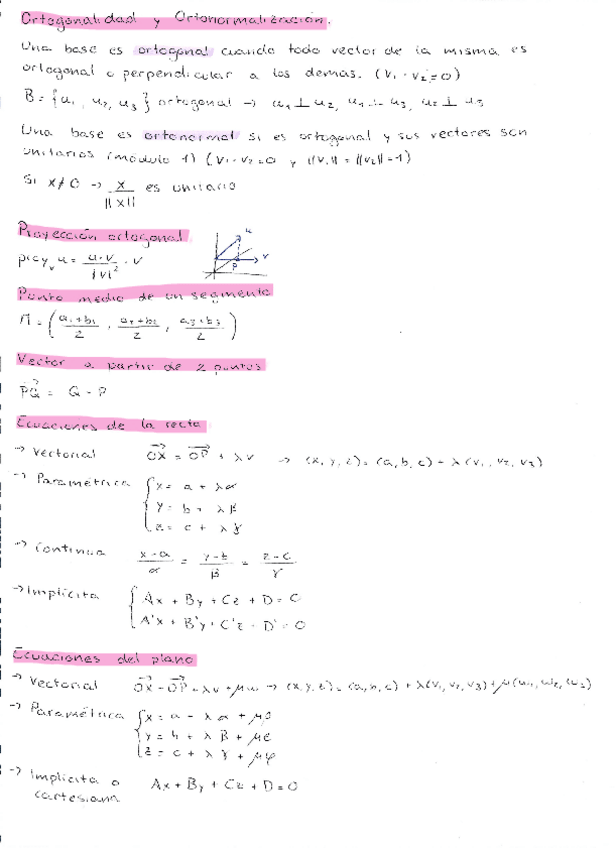 Ortogonalidad y Ortonormalización.
Una base es ortogonal cuando todo vector de la misma es
ortogonal o perpendicular a los demas. (v₁ · v₂ = 0)
B = {u₁, u₂, u₃} ortogonal → u₁ ⊥ u₂, u₁ ⊥ u₃, u₂ ⊥ u₃
Una base es ortonormal si es ortogonal y sus vectores son
unitarios (módulo 1) (v₁ · v₂ = 0 y ||v₁|| = ||v₂|| = 1)
Si x ≠ 0 → x / ||x|| es unitario
Proyección ortogonal
proyᵥ u = u·v / |v|² · v
u
v
P
Punto medio de un segmento
M = (a₁+b₁ / 2, a₂+b₂ / 2, a₃+b₃ / 2)
Vector a partir de 2 puntos
PQ = Q - P
Ecuaciones de la recta
→ Vectorial OX = OP + λv → (x, y, z) = (a, b, c) + λ(v₁, v₂, v₃)
→ Paramétrica { x = a + λα
y = b + λβ
z = c + λγ
→ Continua x-a / α = y-b / β = z-c / γ
→ Implícita { Ax + By + Cz + D = 0
A'x + B'y + C'z + D' = 0
Ecuaciones del plano
→ Vectorial OX = OP + λv + μw → (x, y, z) = (a, b, c) + λ(v₁, v₂, v₃) + μ(w₁, w₂, w₃)
→ Paramétrica { x = a + λα + μδ
y = b + λβ + με
z = c + λγ + μφ
→ Implícita o Ax + By + Cz + D = 0
cartesiana